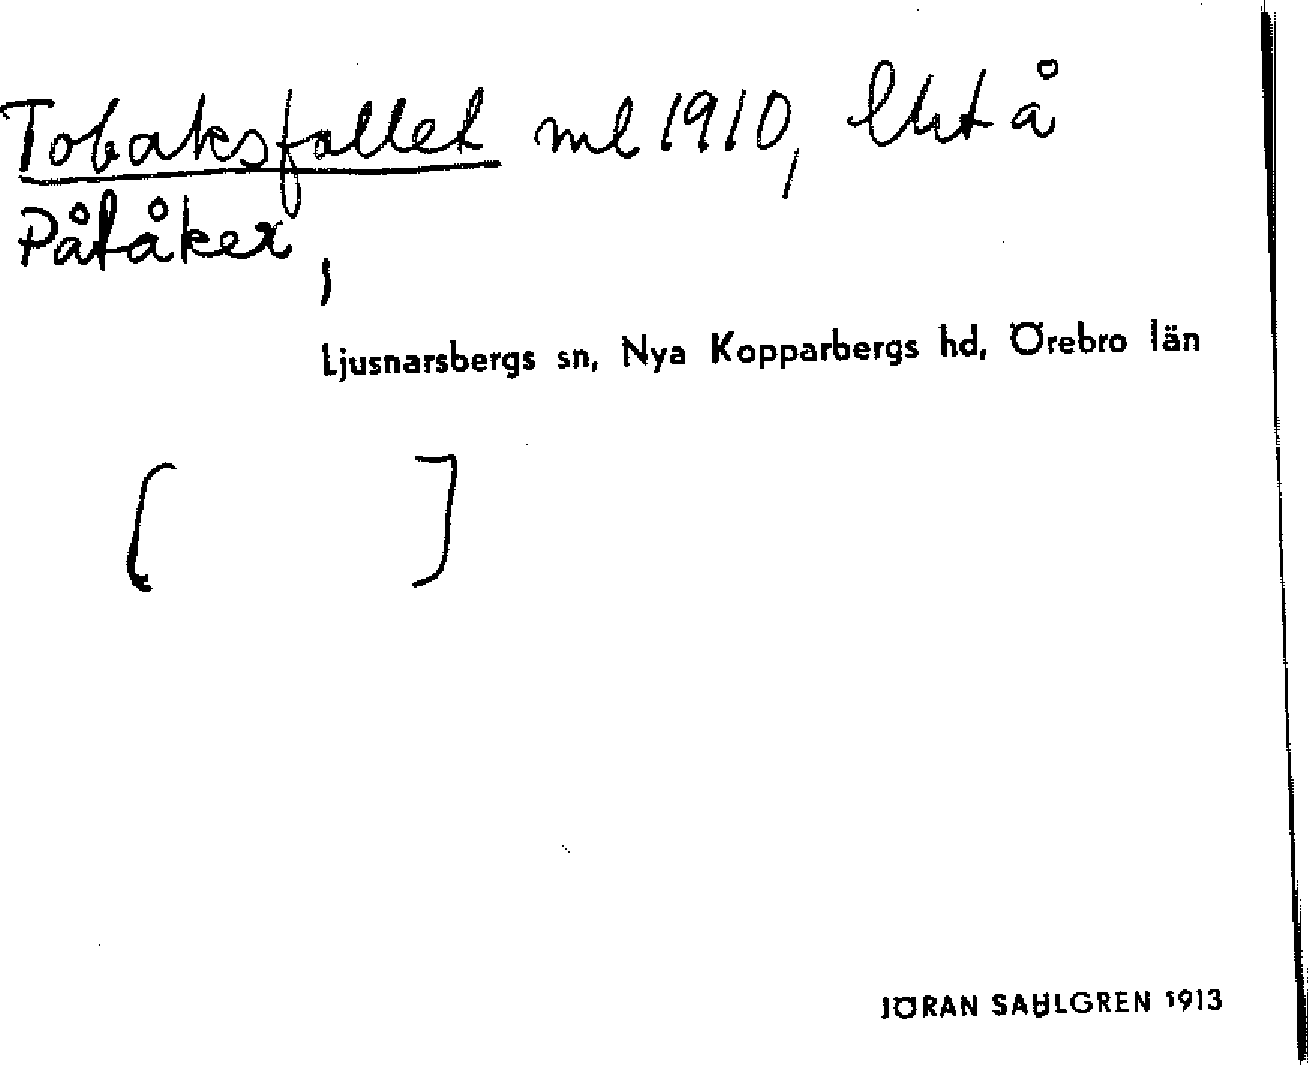 Tobaksfallet ml 1910, å
Påtåker,
Ljusnarsbergs sn, Nya Kopparbergs hd, Örebro län
[ ]
JÖRAN SAHLGREN 1913